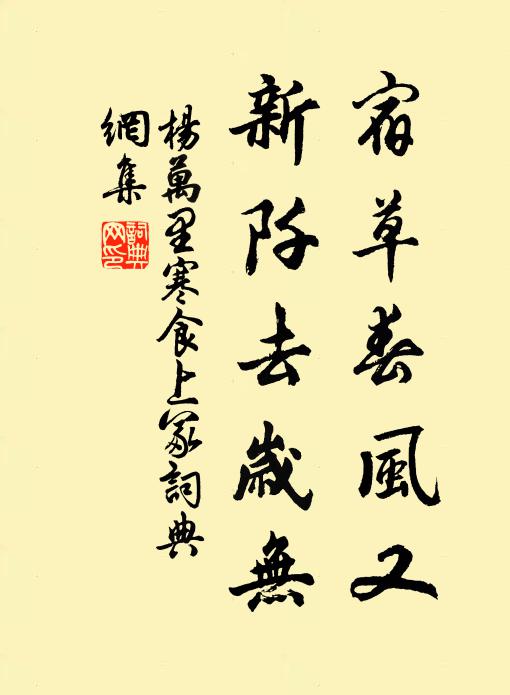 宿草春風又
新阡去歲無
楊萬里寒食上冢詞典
網集
詞典
网印